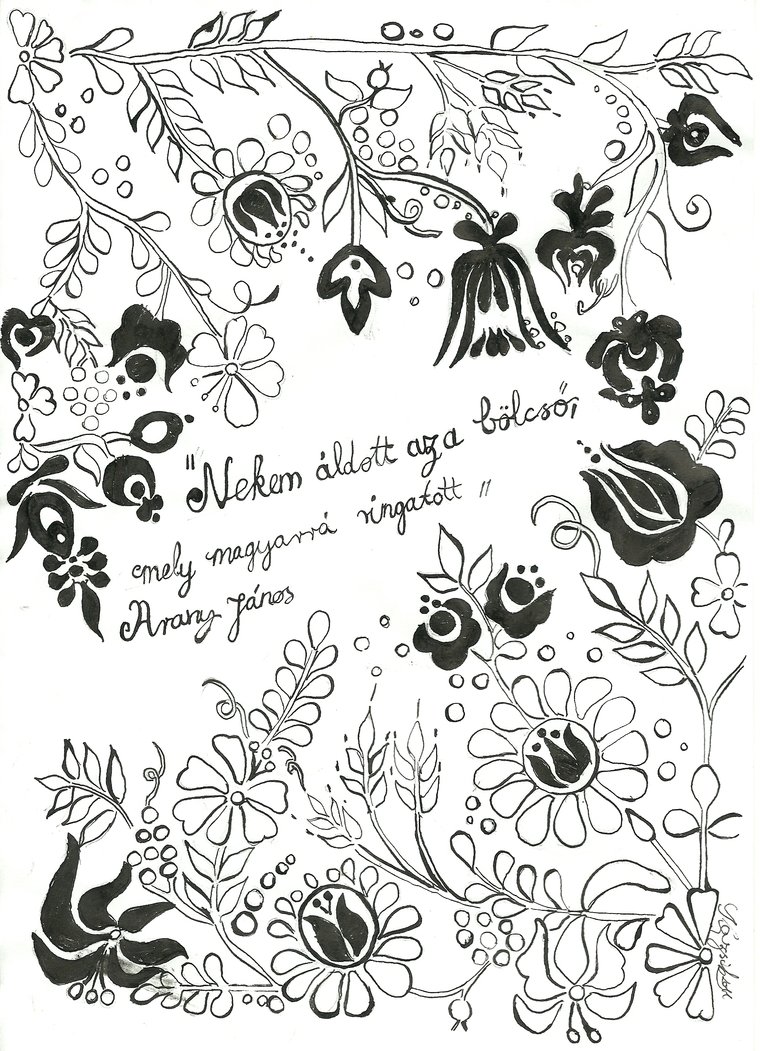 "Nekem áldott az a bölcső,
mely magyarrá ringatott"
Arany János